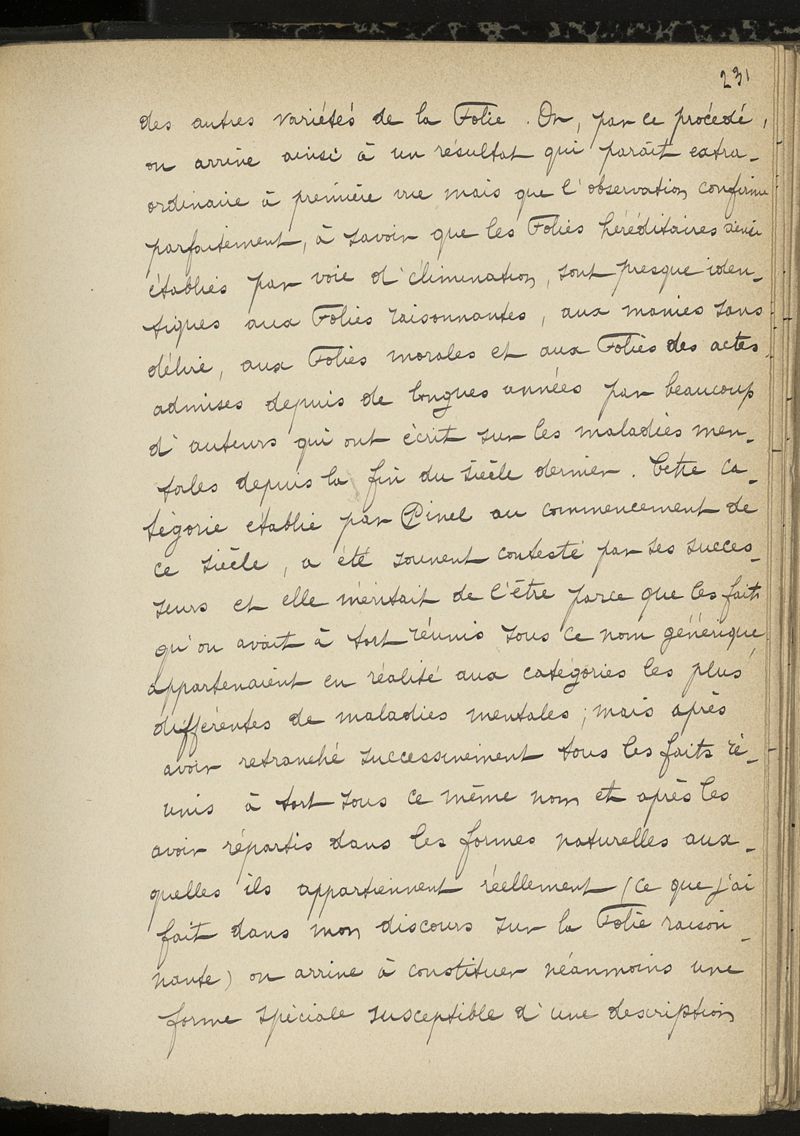 231
des autres variétés de la Folie. Or, par ce procédé,
on arrive ainsi à un résultat qui parait extra-
ordinaire à première vue mais que l'observation confirme
parfaitement, à savoir que les Folies héréditaires ainsi
établies par voie d'élimination, sont presque iden-
tiques aux Folies raisonnantes, aux manies sans
délire, aux Folies morales et aux Folies des actes
admises depuis de longues années par beaucoup
d'auteurs qui ont écrit sur les maladies men-
tales depuis la fin du siècle dernier. Cette ca-
tégorie établie par Pinel au commencement de
ce siècle, a été souvent contesté par ses succes-
seurs et elle méritait de l'être parce que les faits
qu'on avait à tort réunis sous ce nom générique,
appartenaient en réalité aux catégories les plus
différentes de maladies mentales; mais après
avoir retranché successivement tous les faits ré-
unis à tort sous ce même nom et après les
avoir répartis dans les formes naturelles aux-
quelles ils appartiennent réellement (ce que j'ai
fait dans mon discours sur la Folie raison-
nante) on arrive à constituer néanmoins une
forme spéciale susceptible d'une description